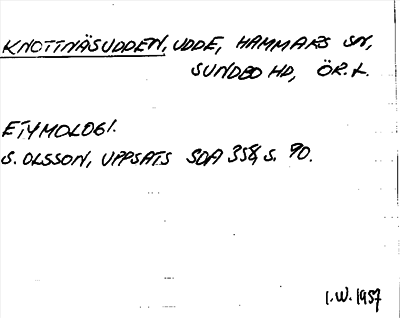 KNOTTNÄSUDDEN, UDDE, HAMMARS SN,
SUNDBO HD, ÖR. L.
ETYMOLOGI.
S. OLSSON, UPPSATS SOA 358, S. 90.
I.W. 1957